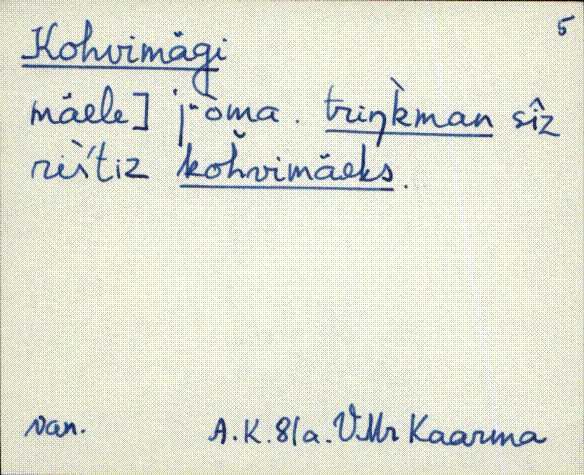 5
Kohvimägi
mäele] j̀òma. triŋk̀man sîz
rìs̀'tiz kŏh̆vimäeks.
van. A.K. 81a. VMr Kaarma